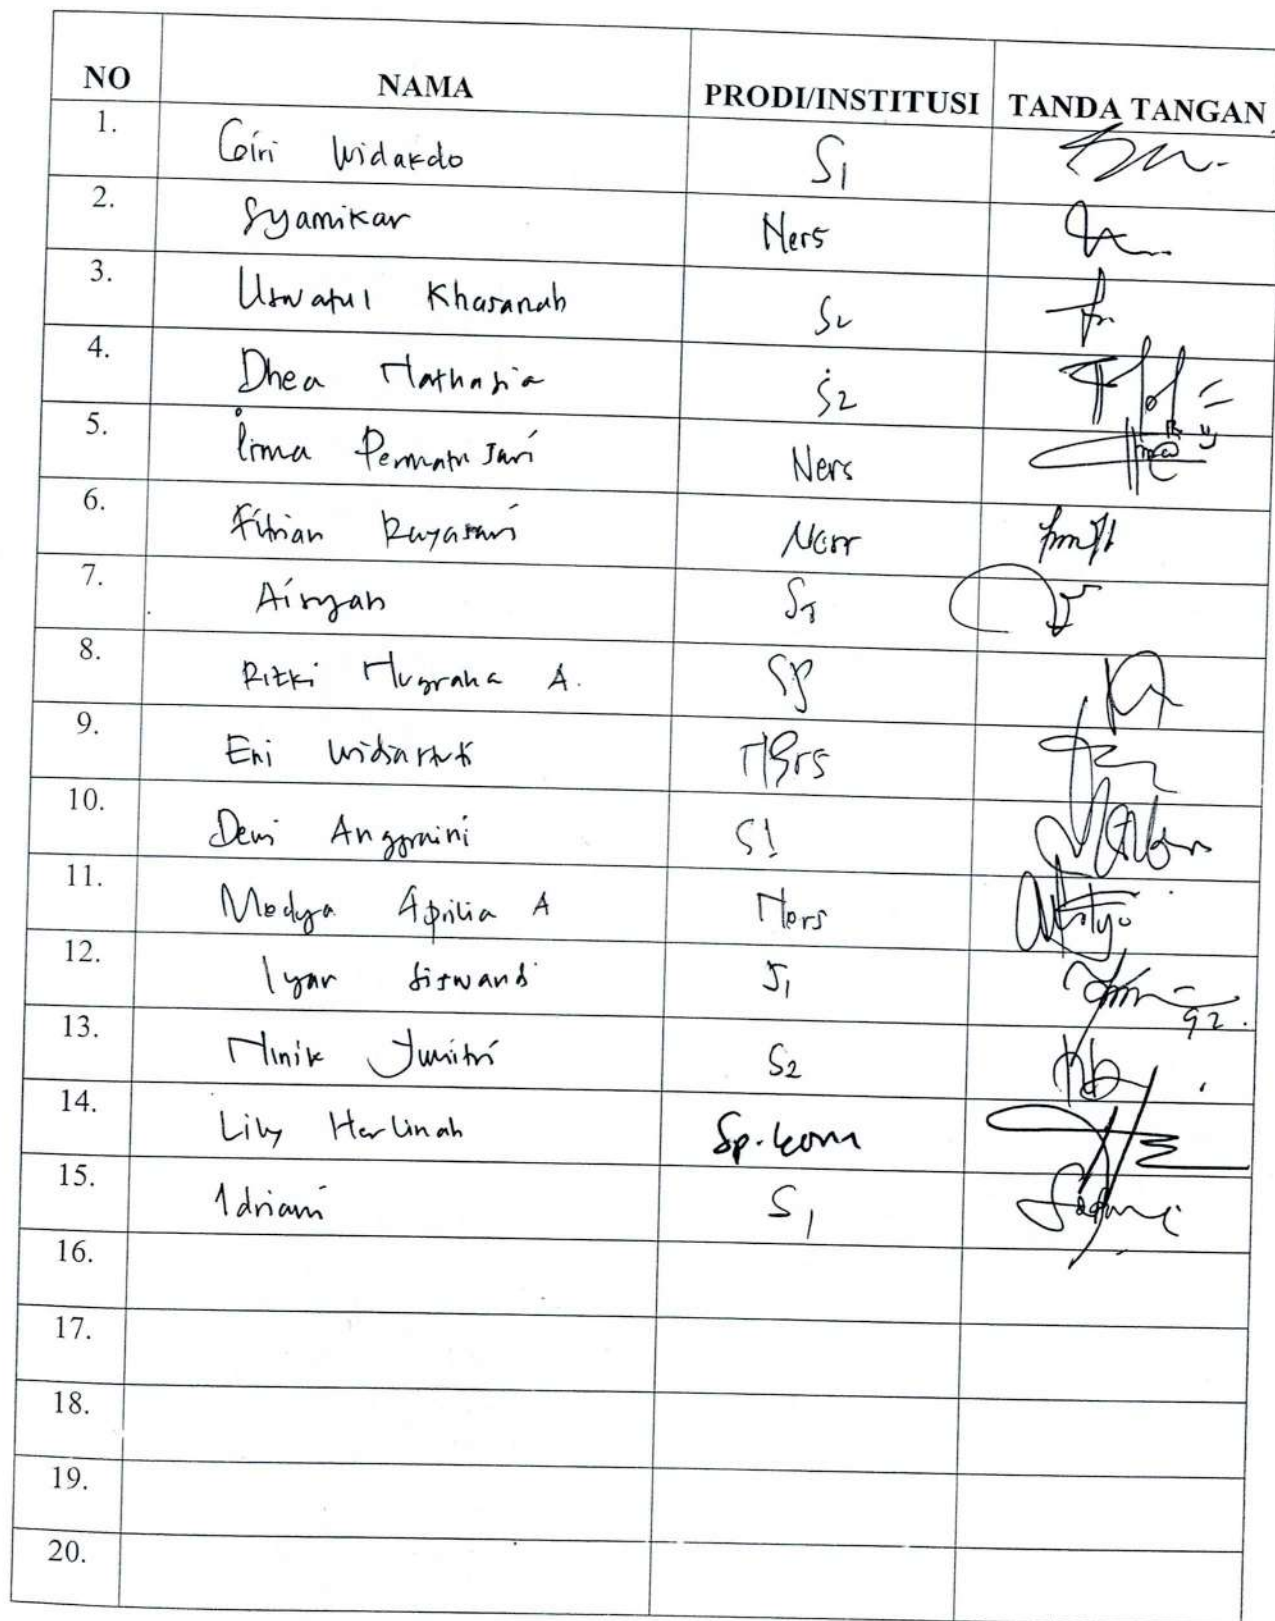 NO NAMA PRODI/INSTITUSI TANDA TANGAN
1. Giri Widakdo S1
2. Syamikar Ners
3. Uswatul Khasanah S2
4. Dhea Nathasia S2
5. Irma Permata Sari Ners
6. Fitrian Rayasari Ners
7. Aisyah
8. Rizki Nugraha A. SP
9. Eni Widiastuti Ners
10. Dewi Anggraini S1
11. Medya Aprilia A Ners
12. Iyar Siswandi S1
13. Ninik Yunitri S2
14. Lily Herlinah Sp.kom
15. Idriani S1
16.
17.
18.
19.
20.